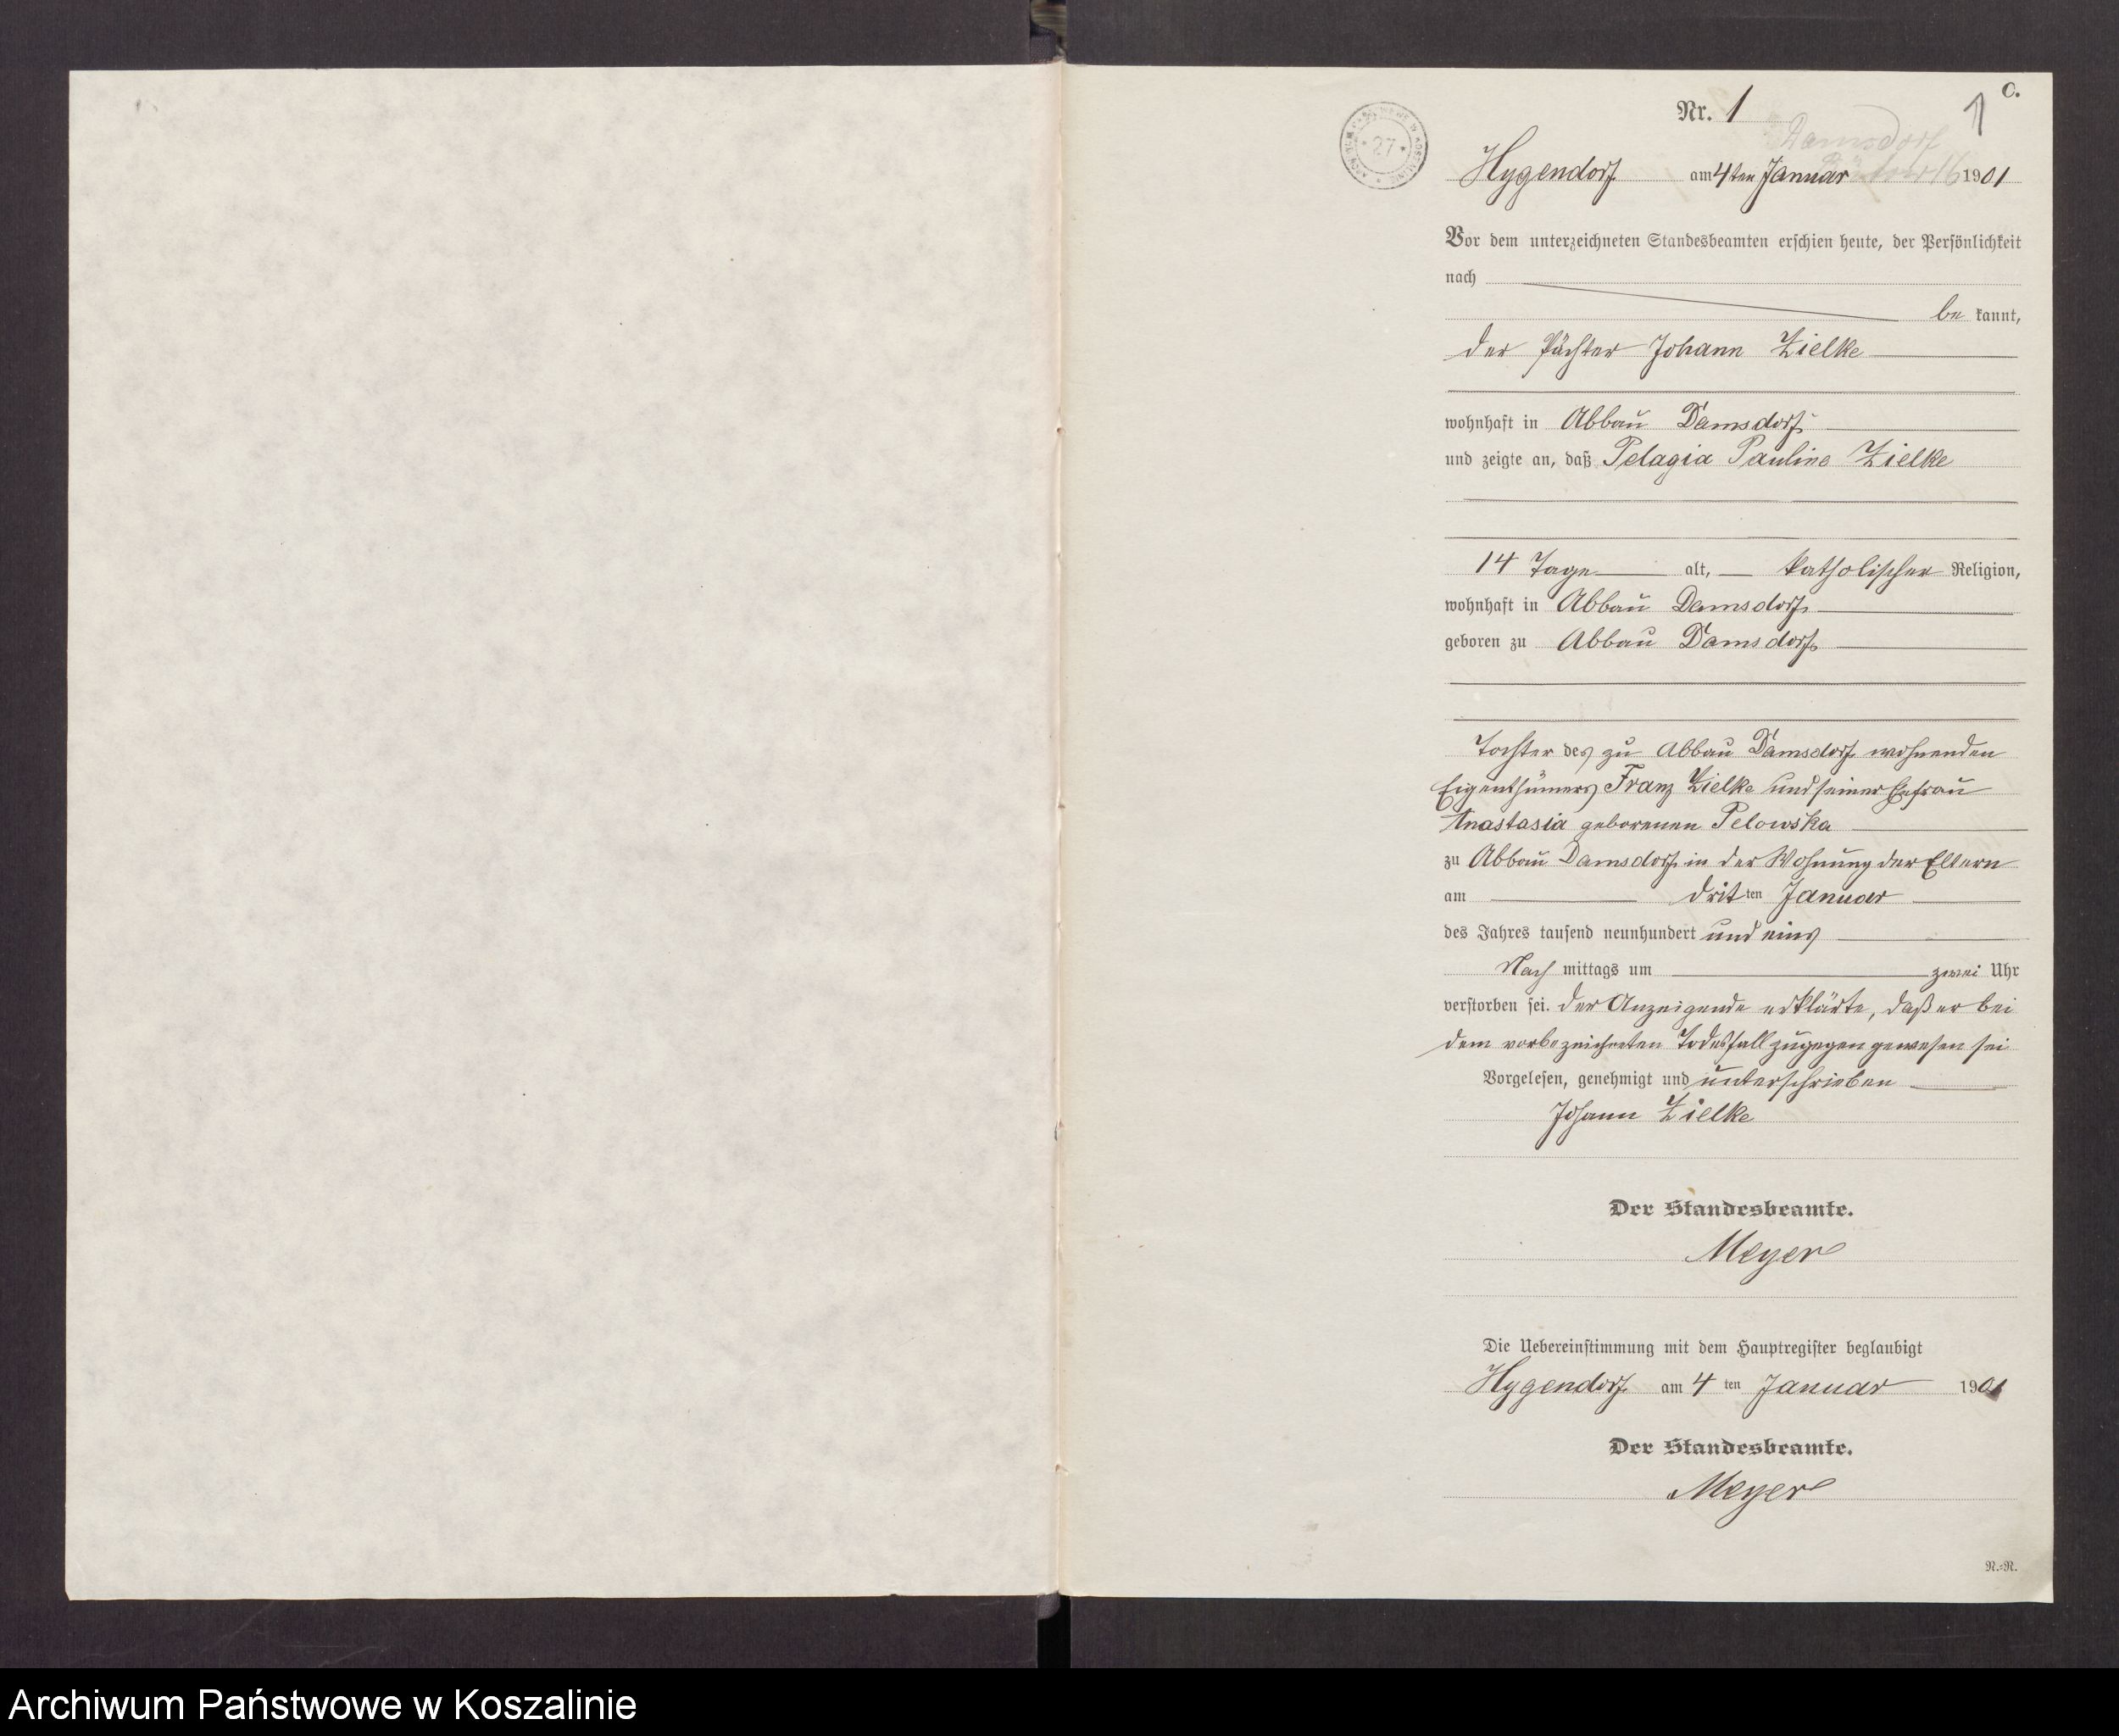 C.
Nr. 1
1
Damsdorf
27
Hygendorf am 4ten Januar 1901
Vor dem unterzeichneten Standesbeamten erschien heute, der Persönlichkeit
nach
be kannt,
der Pächter Johann Zielke
wohnhaft in Abbau Damsdorf
und zeigte an, daß Pelagia Pauline Zielke
14 Tage alt, katholischer Religion,
wohnhaft in Abbau Damsdorf
geboren zu Abbau Damsdorf
Tochter des zu Abbau Damsdorf wohnenden
Eigenthümers Franz Zielke und seiner Ehefrau
Anastasia geborenen Pelowska
zu Abbau Damsdorf in der Wohnung der Eltern
am dritten Januar
des Jahres tausend neunhundert und eins
Nach mittags um zwei Uhr
verstorben sei. Der Anzeigende erklärte, daß er bei
dem vorbezeichneten Todesfall zugegen gewesen sei
Vorgelesen, genehmigt und unterschrieben
Johann Zielke
Der Standesbeamte.
Meyer
Die Uebereinstimmung mit dem Hauptregister beglaubigt
Hygendorf am 4 ten Januar 1901
Der Standesbeamte.
Meyer
N.-N.
Archiwum Państwowe w Koszalinie